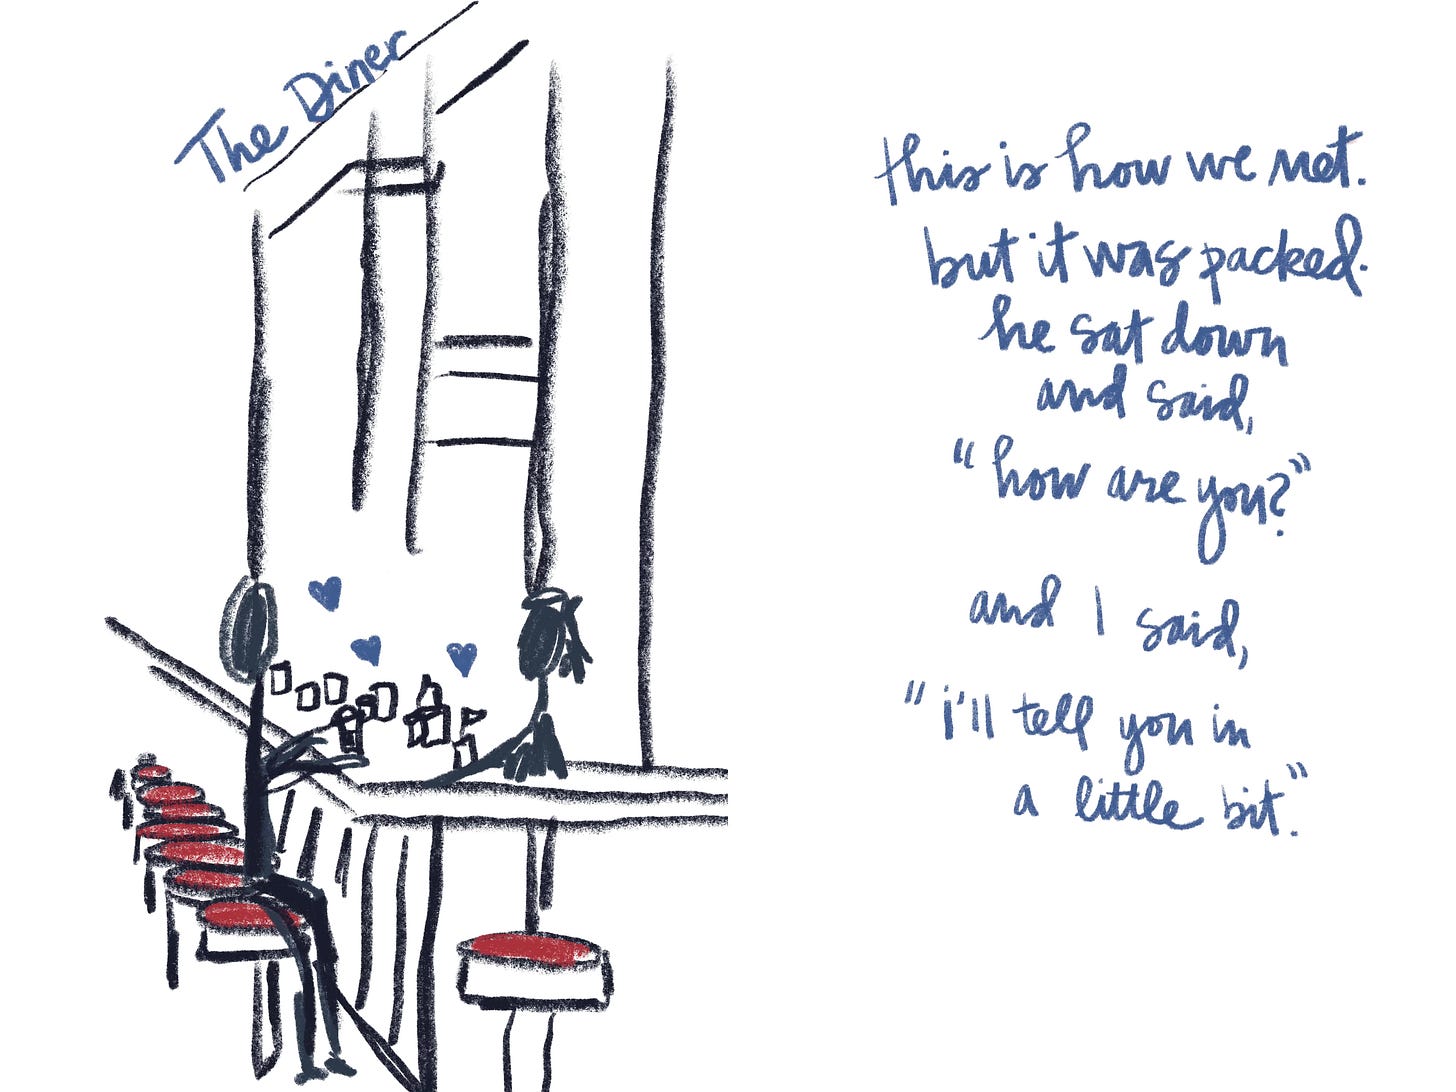 The Diner
this is how we met.
but it was packed.
he sat down
and said,
"how are you?"
and I said,
"i'll tell you in
a little bit."